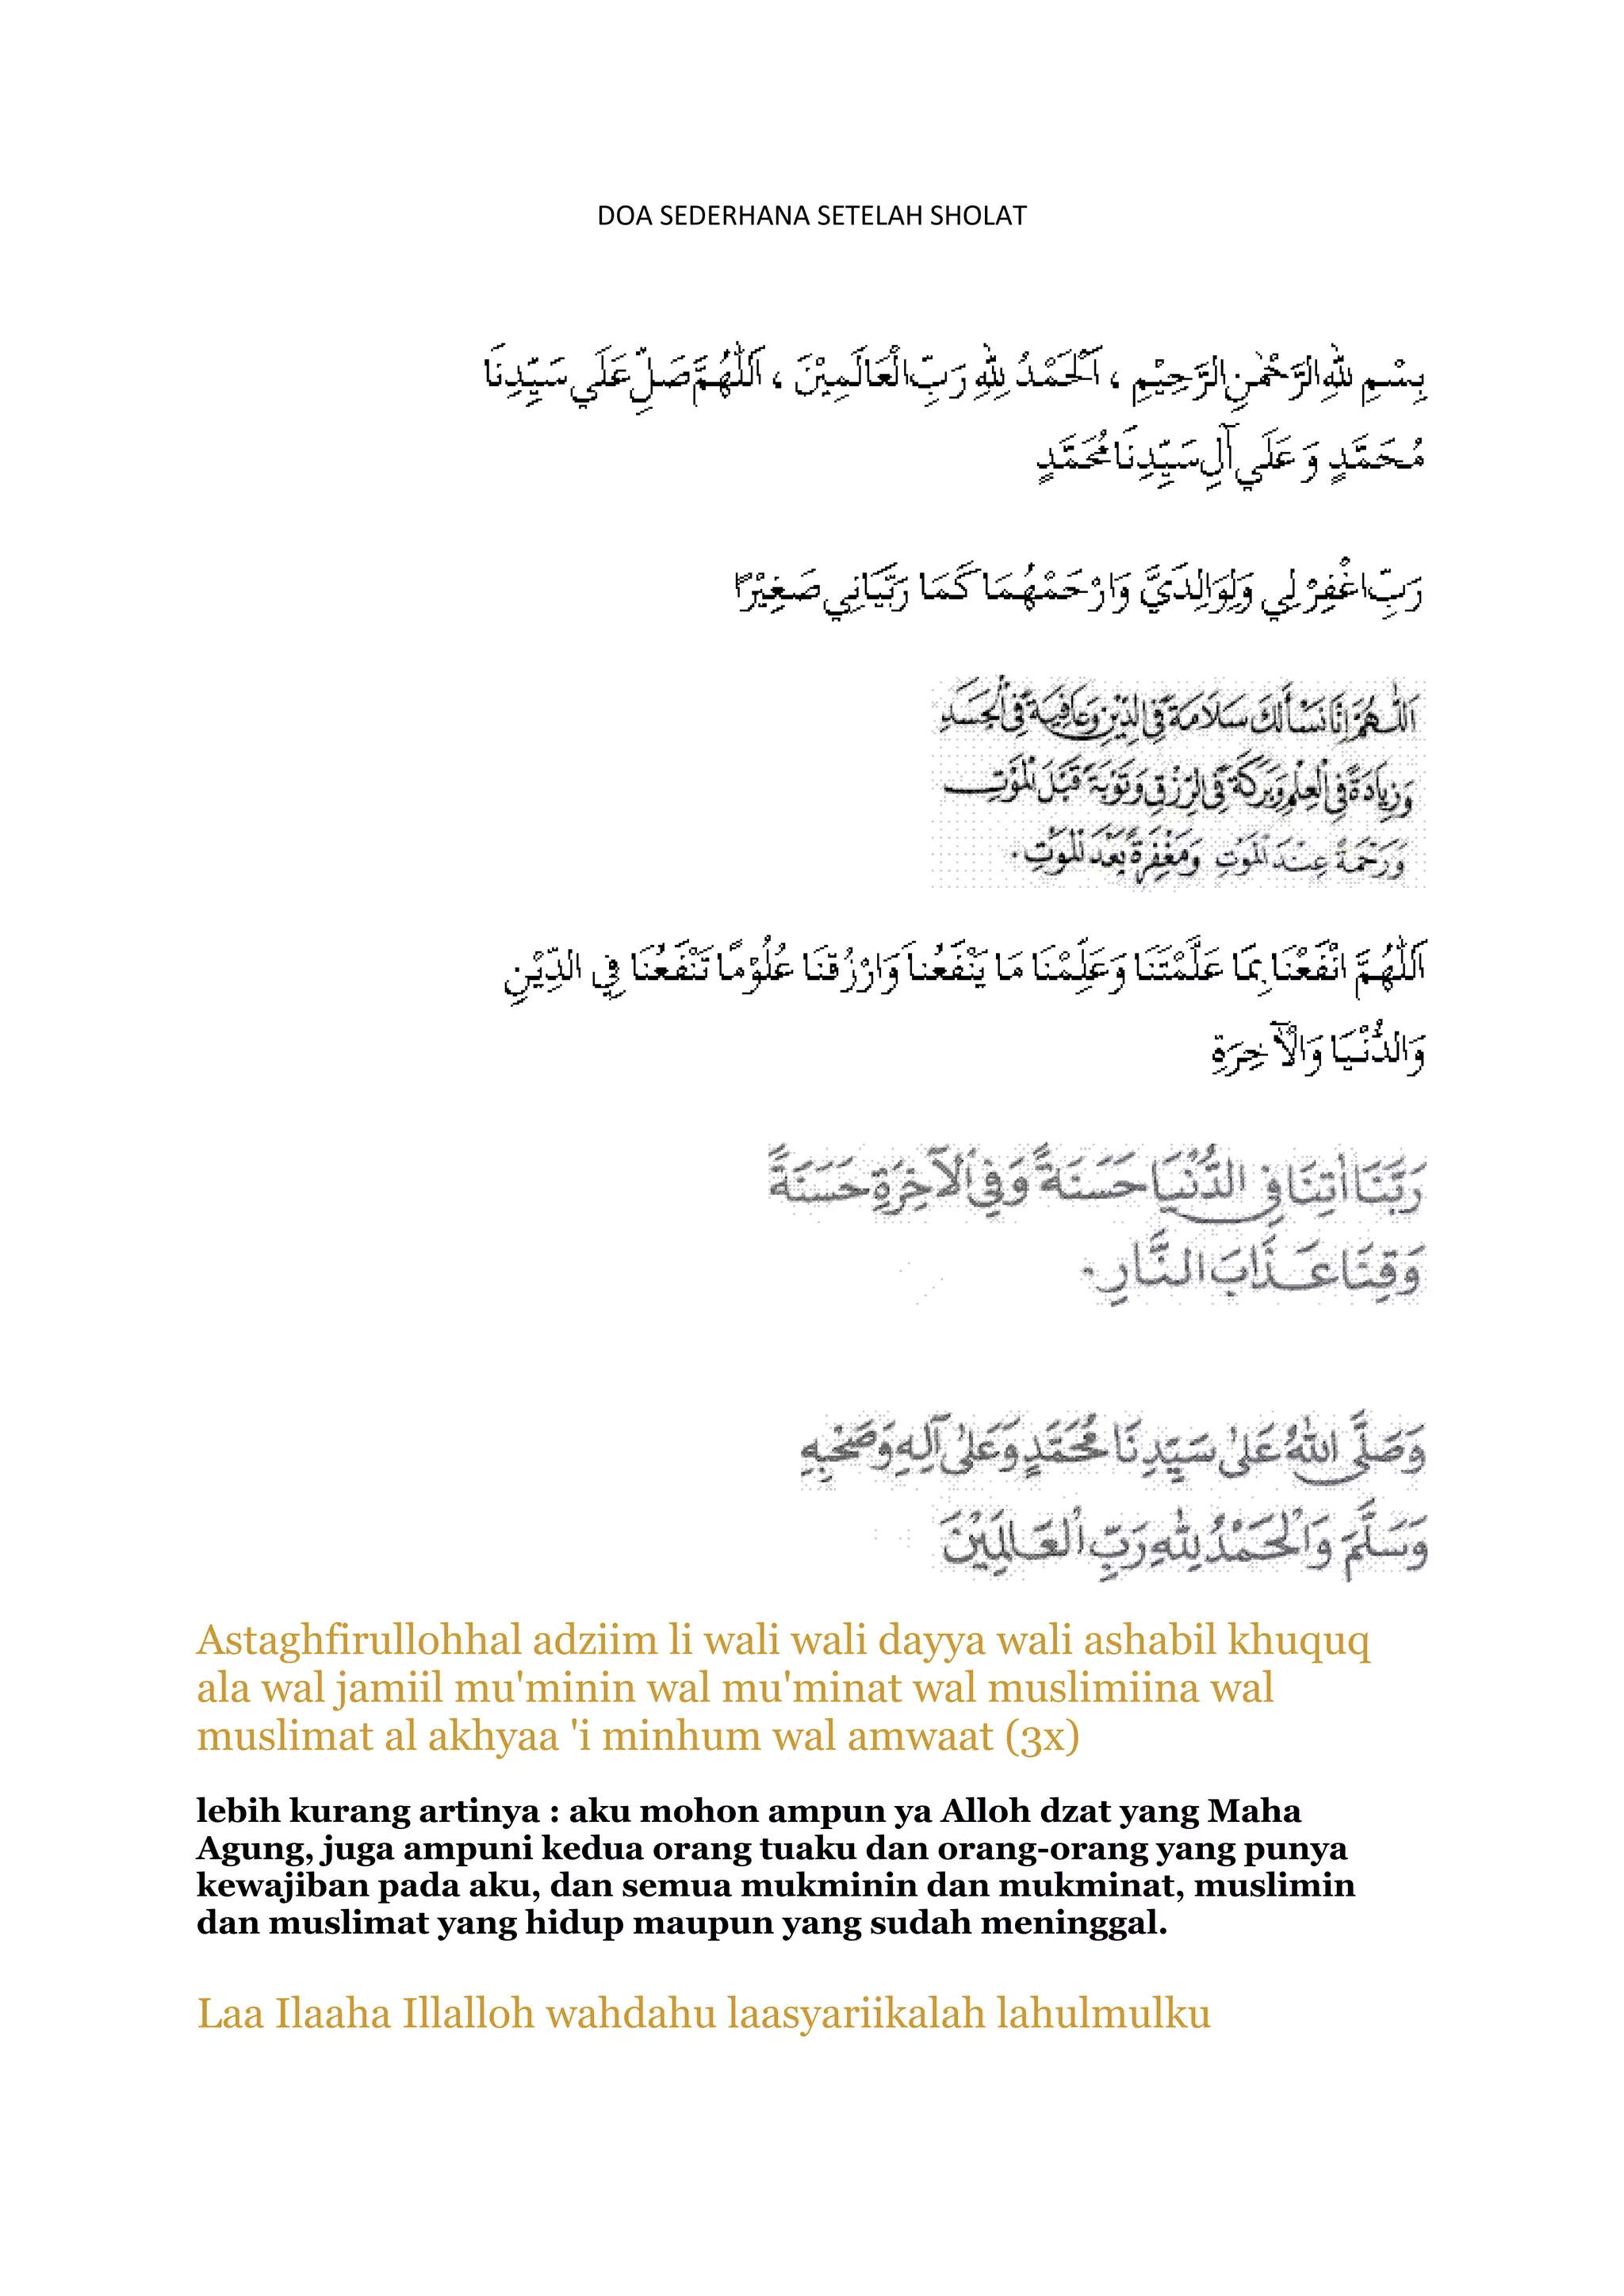 DOA SEDERHANA SETELAH SHOLAT
بِسْمِ للهِ الرَّحْمٰنِ الرَّحِيْمِ ، اَلْحَمْدُ لِلهِ رَبِّ الْعَالَمِيْنَ ، اَللّٰهُمَّ صَلِّ عَلَي سَيِّدِنَا
مُحَمَّدٍ وَ عَلَي آلِ سَيِّدِنَا مُحَمَّدٍ
رَبِّ اغْفِرْ لِي وَلِوَالِدَيَّ وَارْحَمْهُمَا كَمَا رَبَّيَانِي صَغِيْرًا
اَللّٰهُمَّ اِنَّا نَسْأَلُكَ سَلَامَةً فِى الدِّيْنِ وَعَافِيَةً فِى الْجَسَدِ
وَزِيَادَةً فِى الْعِلْمِ وَبَرَكَةً فِى الرِّزْقِ وَتَوْبَةً قَبْلَ الْمَوْتِ
وَرَحْمَةً عِنْدَ الْمَوْتِ وَمَغْفِرَةً بَعْدَ الْمَوْتِ.
اَللّٰهُمَّ انْفَعْنَا بِمَا عَلَّمْتَنَا وَعَلِّمْنَا مَا يَنْفَعُنَا وَارْزُقنَا عُلُوْمًا تَنْفَعُنَا فِي الدِّيْنِ
وَالدُّنْيَا وَالْآخِرَةِ
رَبَّنَا اٰتِنَا فِى الدُّنْيَا حَسَنَةً وَفِى الْآخِرَةِ حَسَنَةً
وَقِنَا عَذَابَ النَّارِ.
وَصَلَّى اللهُ عَلٰى سَيِّدِنَا مُحَمَّدٍ وَعَلٰى آلِهِ وَصَحْبِهِ
وَسَلَّمَ وَالْحَمْدُ لِلهِ رَبِّ الْعَالَمِيْنَ
Astaghfirullohhal adziim li wali wali dayya wali ashabil khuquq
ala wal jamiil mu'minin wal mu'minat wal muslimiina wal
muslimat al akhyaa 'i minhum wal amwaat (3x)
lebih kurang artinya : aku mohon ampun ya Alloh dzat yang Maha
Agung, juga ampuni kedua orang tuaku dan orang-orang yang punya
kewajiban pada aku, dan semua mukminin dan mukminat, muslimin
dan muslimat yang hidup maupun yang sudah meninggal.
Laa Ilaaha Illalloh wahdahu laasyariikalah lahulmulku